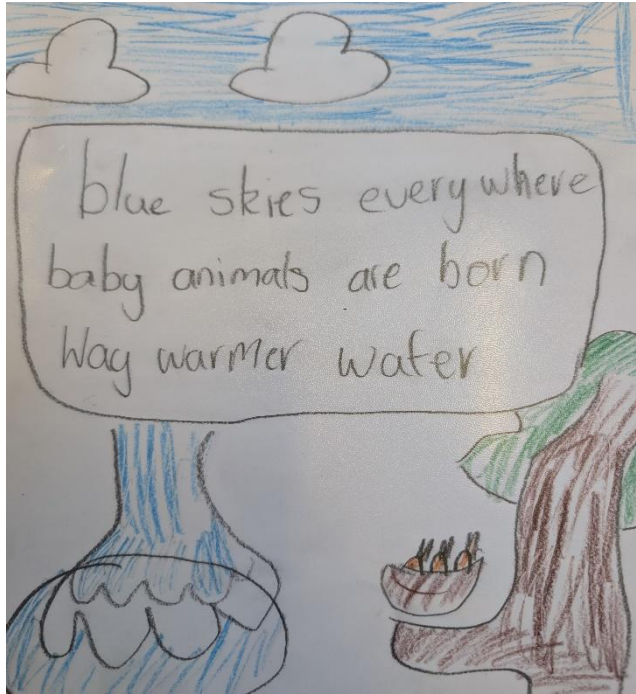 blue skies everywhere
baby animals are born
Way warmer water